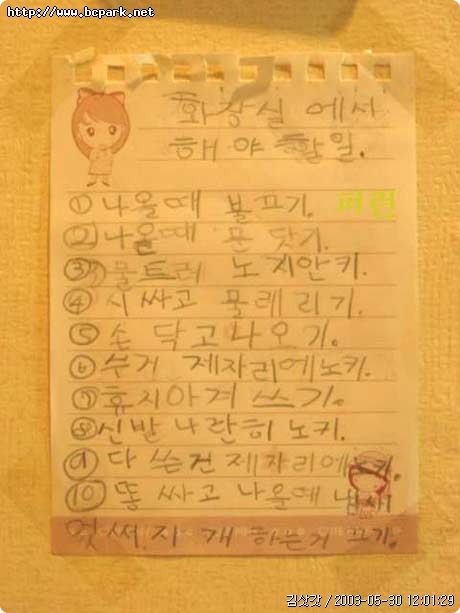 http://www.bcpark.net
화장실 에서
해야 할일.
① 나올때 불끄기. 퍼런
② 나올때 문 닷기.
③ 물트레 노치안키.
④ 시싸고 물레리기.
⑤ 손 닥고나오기.
⑥ 수거 제자리에노키.
⑦ 휴지아겨 쓰기.
⑧ 신반 나란히 노키.
⑨ 다 쓴건제자리에노키.
⑩ 똥 싸고 나올때 냄새
멋써.지 개 하는거 끄기.
김삿갓 / 2003-05-30 12:01:29